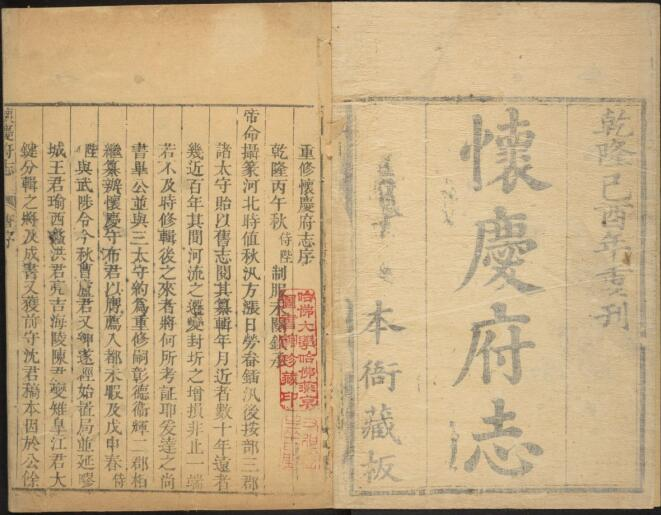 乾隆己酉年重刊
懷慶府志
本衙藏板
重修懷慶府志序
乾隆丙午秋侍陛制服未闋欽承
帝命攝篆河北時值秋汛方漲日勞畚鍤汛後按部三郡
諸太守貽以舊志閱其纂輯年月近者數十年遠者
幾近百年其間河流之遷變封圻之增損非止一端
若不及時修輯後之來者將何所考証耶爰達之尚
書畢公並與三太守約為重修嗣彰德衞輝二郡相
繼纂辦懷慶守布君以膺薦入都未暇及戊申春侍
陛與武陟令今秋曹盧君又
始置局並延嘐
城王君瑜西
洪君亮吉海陵陳君燮雉臯江君大
鍵分輯之將及成書又獲前守沈君稿本因於公餘
哈佛大學哈佛燕京
圖書館珍藏印
懷慶府志
序